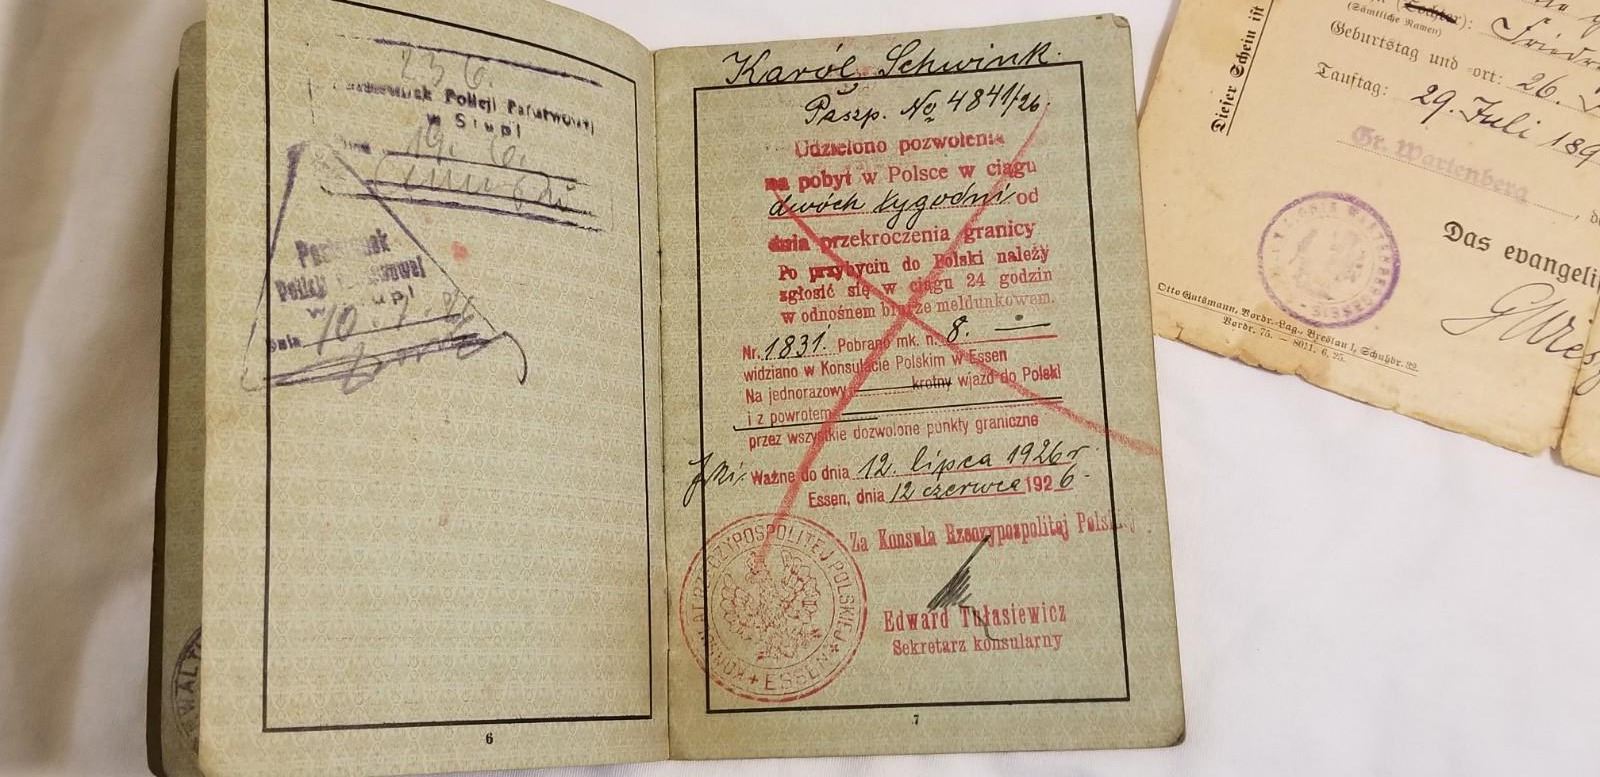 236.
Policji Państwowej
w Słupi
19. 6.
Posterunek
Policji Państwowej
w Słupi
dnia 10. 7. 26
6
Karól Schwink.
Paszp. № 4841/26
Udzielono pozwolenia
na pobyt w Polsce w ciągu
dwóch tygodni od
dnia przekroczenia granicy
Po przybyciu do Polski należy
zgłosić się w ciągu 24 godzin
w odnośnem biurze meldunkowem.
Nr. 1831. Pobrano mk. n. 8.—
widziano w Konsulacie Polskim w Essen
Na jednorazowy krotny wjazd do Polski
i z powrotem
przez wszystkie dozwolone punkty graniczne
Ważne do dnia 12. lipca 1926 r.
Essen, dnia 12 czerwca 1926.
Za Konsula Rzeczypospolitej Polskiej
KONSULAT RZECZYPOSPOLITEJ POLSKIEJ
ESSEN
Edward Tułasiewicz
Sekretarz konsularny
7
Dieser Schein ist
(Tochter):
(Sämtliche Namen)
Geburtstag und -ort: 26.
Tauftag: 29. Juli 189
Gr. Wartenberg
Das evangelis
Otto Gutsmann, Vordr.-Lag., Breslau 1, Schuhbr. 32.
Vordr. 75. — 8011. 6. 25.